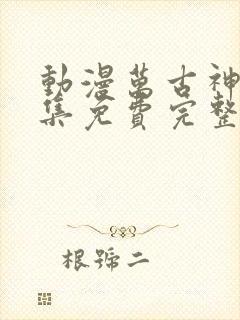 動漫萬古神
集免費完整
根號二